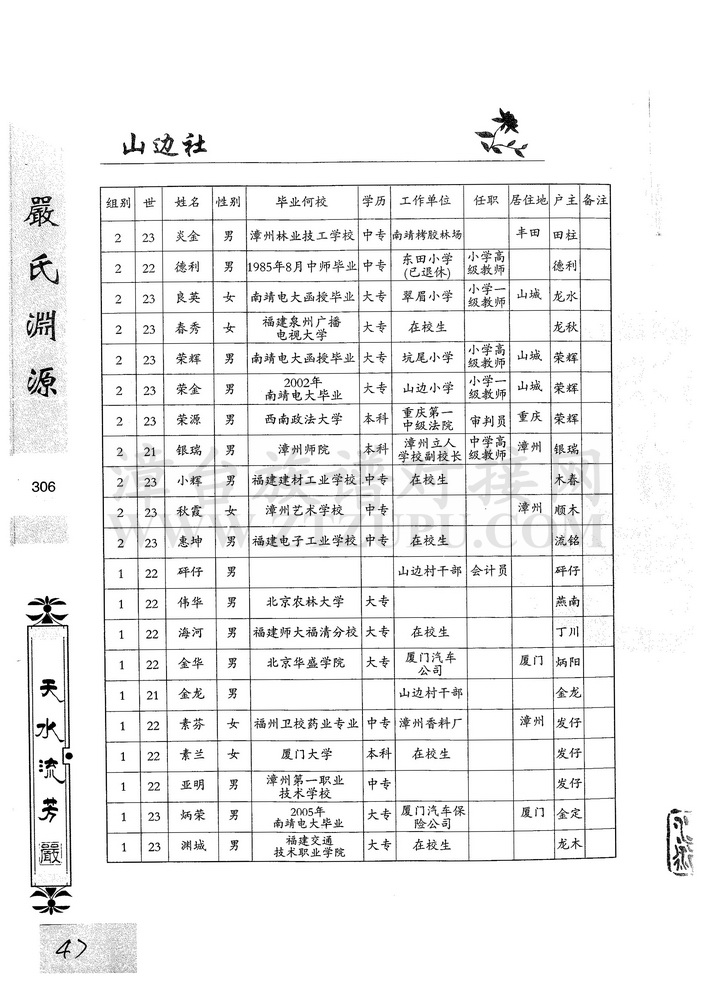 山边社
嚴氏淵源
306
天水流芳
嚴
组别 世 姓名 性别 毕业何校 学历 工作单位 任职 居住地 户主 备注
2 23 炎金 男 漳州林业技工学校 中专 南靖栲胶林场 丰田 田柱
2 22 德利 男 1985年8月中师毕业 中专 东田小学(已退休) 小学高级教师 德利
2 23 良英 女 南靖电大函授毕业 大专 翠眉小学 小学一级教师 山城 龙水
2 23 春秀 女 福建泉州广播电视大学 大专 在校生 龙秋
2 23 荣辉 男 南靖电大函授毕业 大专 坑尾小学 小学高级教师 山城 荣辉
2 23 荣金 男 2002年南靖电大毕业 大专 山边小学 小学一级教师 山城 荣辉
2 23 荣源 男 西南政法大学 本科 重庆第一中级法院 审判员 重庆 荣辉
2 21 银瑞 男 漳州师院 本科 漳州立人学校副校长 中学高级教师 漳州 银瑞
2 23 小辉 男 福建建材工业学校 中专 在校生 木春
2 23 秋霞 女 漳州艺术学校 中专 漳州 顺木
2 23 惠坤 男 福建电子工业学校 中专 在校生 流铭
1 22 砰仔 男 山边村干部 会计员 砰仔
1 22 伟华 男 北京农林大学 大专 燕南
1 22 海河 男 福建师大福清分校 大专 在校生 丁川
1 22 金华 男 北京华盛学院 大专 厦门汽车公司 厦门 炳阳
1 21 金龙 男 山边村干部 金龙
1 22 素芬 女 福州卫校药业专业 中专 漳州香料厂 漳州 发仔
1 22 素兰 女 厦门大学 本科 在校生 发仔
1 22 亚明 男 漳州第一职业技术学校 中专 发仔
1 23 炳荣 男 2005年南靖电大毕业 大专 厦门汽车保险公司 厦门 金定
1 23 渊城 男 福建交通技术职业学院 大专 在校生 龙木
漳台族谱对接网
WWW.ZTZUPU.COM
47